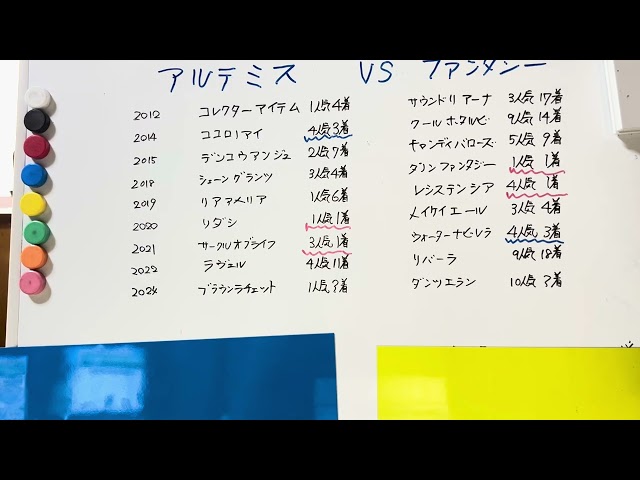 アルテミス VS ファンタジー
2012 コレクターアイテム 1人気4着 サウンドリアーナ 3人気17着
2014 ココロノアイ 4人気3着 クールホタルビ 9人気14着
2015 デンコウアンジュ 2人気7着 キャンディバローズ 5人気9着
2018 シェーングランツ 3人気4着 ダノンファンタジー 1人気1着
2019 リアアメリア 1人気6着 レシステンシア 4人気1着
2020 ソダシ 1人気1着 メイケイエール 3人気4着
2021 サークルオブライフ 3人気1着 ウォーターナビレラ 4人気3着
2022 ラヴェル 4人気11着 リバーラ 9人気18着
2024 ブラウンラチェット 1人気 ダンツエラン 10人気